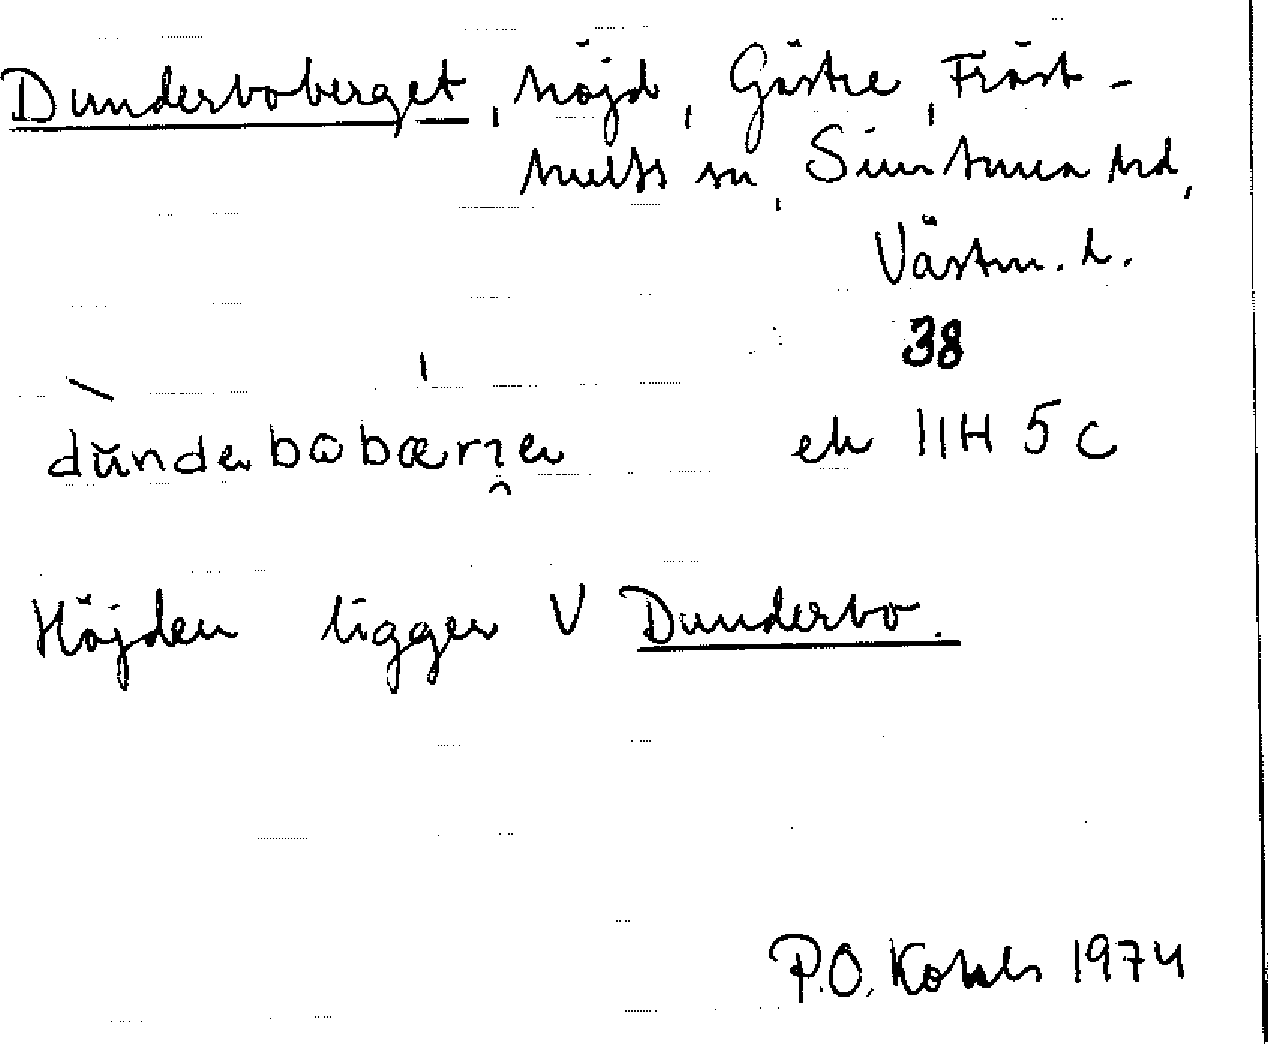 Dunderboberget, höjd, Gästre, Fröst-
hults sn, Simtuna hd,
Västm. l.
38
dùndɘbωbærjɘn ek 11H 5c
Höjden ligger V Dunderbo.
P.O. 1974